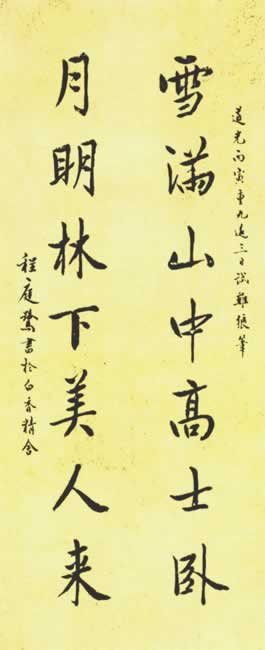 道光丙寅重九三日試雞狼筆
雪滿山中高士卧
月明林下美人来
程庭鷺書於白香精舍